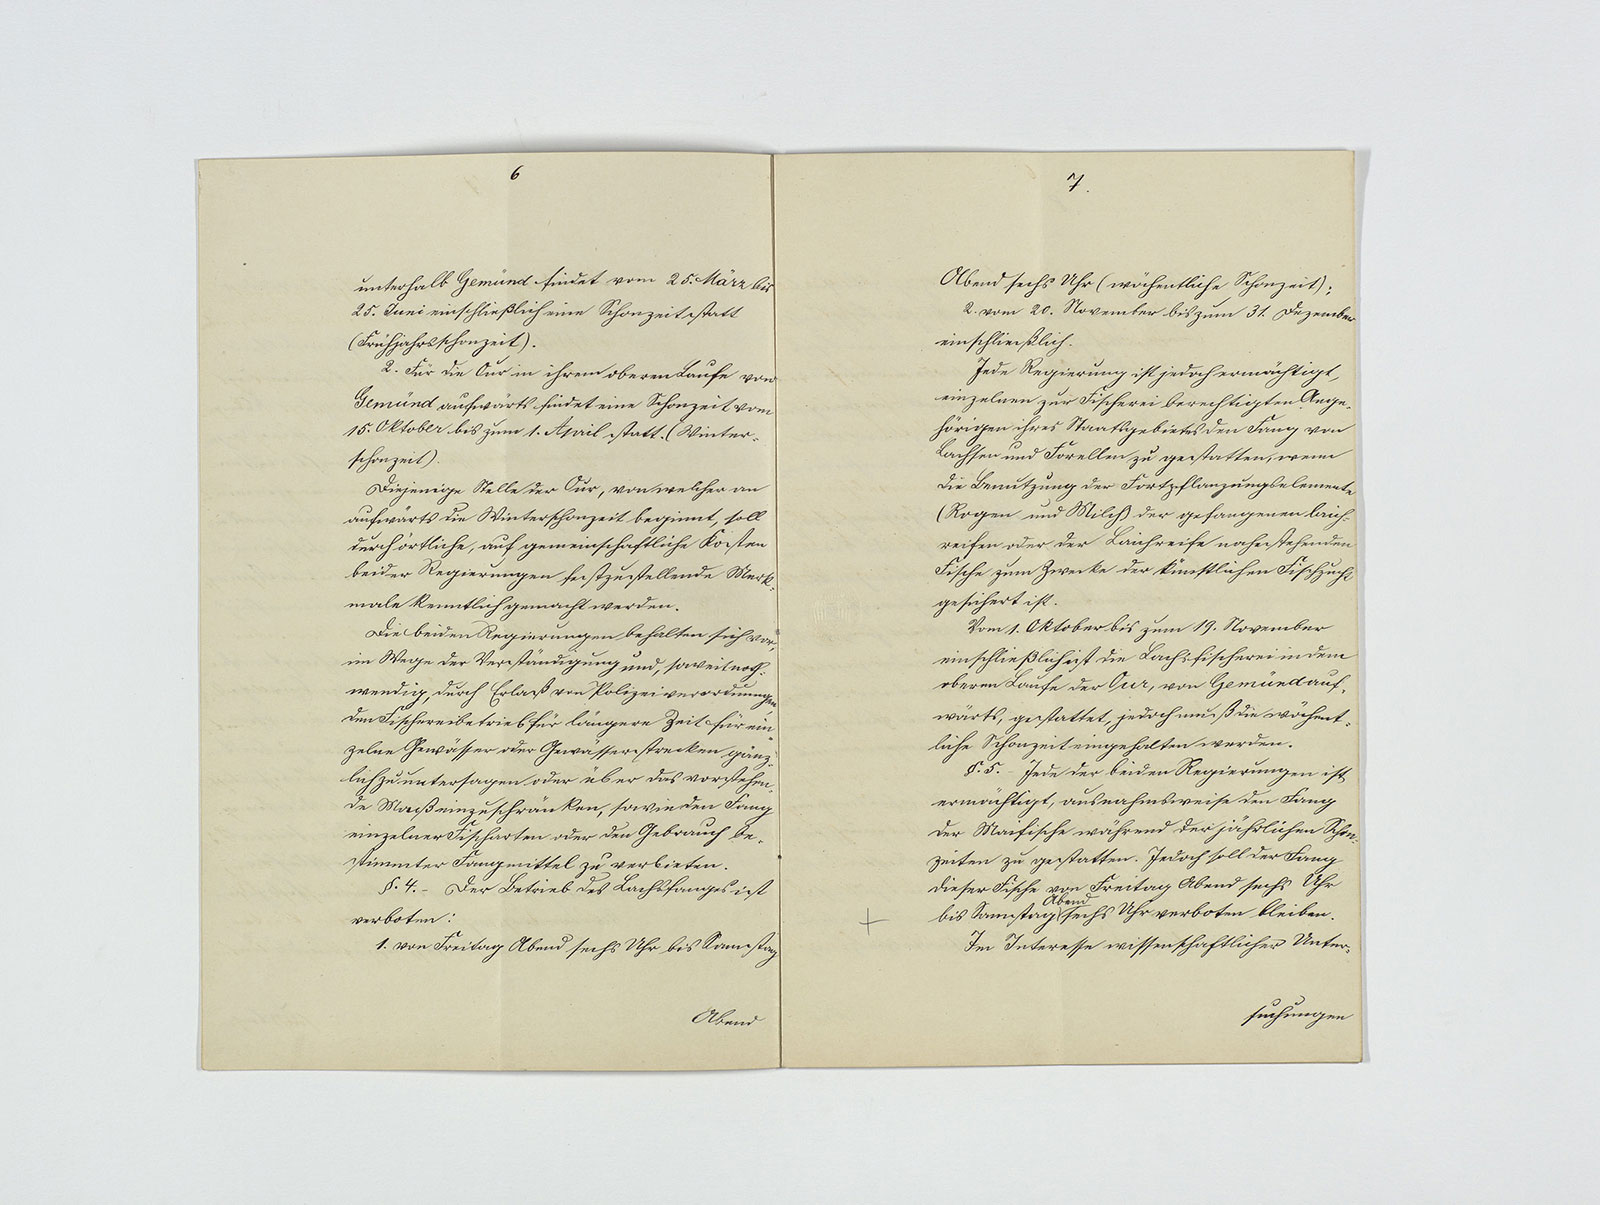 6
unterhalb Gemünd findet vom 25. März bis
25. Juni einschließlich eine Schonzeit statt
(Frühjahrsschonzeit).
2. Für die Our in ihrem oberen Laufe von
Gemünd aufwärts findet eine Schonzeit vom
15. Oktober bis zum 1. April statt. (Winter-
schonzeit).
Diejenige Stelle der Our, von welcher an
aufwärts die Winterschonzeit beginnt, soll
durch örtliche, auf gemeinschaftliche Kosten
beider Regierungen festzustellende Merk-
male kenntlich gemacht werden.
Die beiden Regierungen behalten sich vor,
im Wege der Verständigung und, soweit noth-
wendig, durch Erlaß von Polizeiverordnungen
den Fischereibetrieb für längere Zeit für ein-
zelne Gewässer oder Gewässerstrecken gänz-
lich zu untersagen oder über das vorstehen-
de Maaß einzuschränken, sowie den Fang
einzelner Fischarten oder den Gebrauch be-
stimmter Fangmittel zu verbieten.
§. 4. - Der Betrieb des Lachsfanges ist
verboten:
1. von Freitag Abend sechs Uhr bis Samstag
Abend
7.
Abend sechs Uhr (wöchentliche Schonzeit);
2. vom 20. November bis zum 31. Dezember
einschließlich.
Jede Regierung ist jedoch ermächtigt,
einzelnen zur Fischerei berechtigten Ange-
hörigen ihres Staatsgebietes den Fang von
Lachsen und Forellen zu gestatten, wenn
die Benutzung der Fortpflanzungselemente
(Rogen und Milch) der gefangenen laich-
reifen oder der Laichreife nahestehenden
Fische zum Zwecke der künstlichen Fischzucht
gesichert ist.
Vom 1. Oktober bis zum 19. November
einschließlich ist die Lachsfischerei in dem
oberen Laufe der Our, von Gemünd auf-
wärts, gestattet, jedoch muß die wöchent-
liche Schonzeit eingehalten werden.
§. 5. - Jede der beiden Regierungen ist
ermächtigt, ausnahmsweise den Fang
der Maifische während der jährlichen Schon-
zeiten zu gestatten. Jedoch soll der Fang
dieser Fische von Freitag Abend sechs Uhr
Abend
bis Samstag sechs Uhr verboten bleiben.
Im Interesse wissenschaftlicher Unter-
suchungen